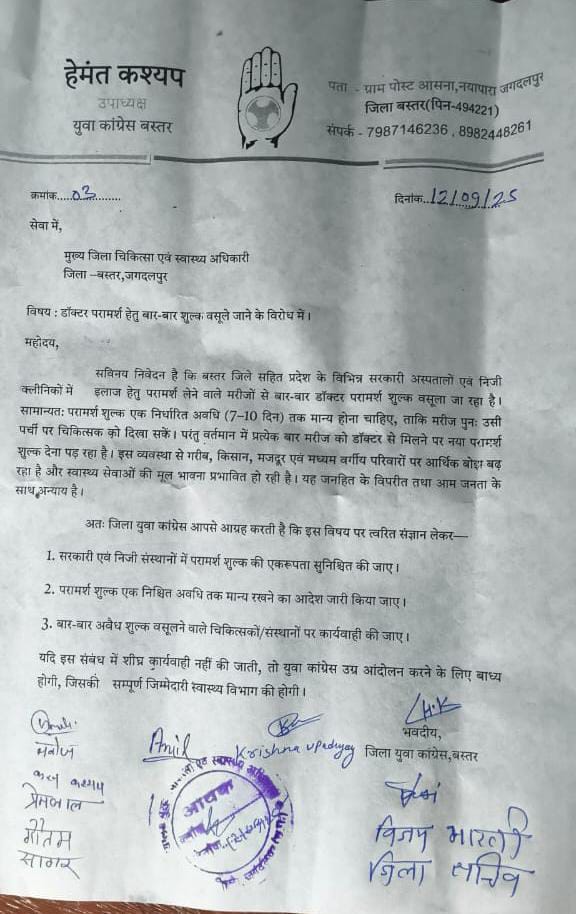 हेमंत कश्यप
उपाध्यक्ष
युवा कांग्रेस बस्तर
पता - ग्राम पोस्ट आसना,नयापारा जगदलपुर
जिला बस्तर(पिन-494221)
संपर्क - 7987146236 , 8982448261
क्रमांक.....03..........
दिनांक..12/09/25
सेवा में,
मुख्य जिला चिकित्सा एवं स्वास्थ्य अधिकारी
जिला –बस्तर,जगदलपुर
विषय : डॉक्टर परामर्श हेतु बार-बार शुल्क वसूले जाने के विरोध में।
महोदय,
सविनय निवेदन है कि बस्तर जिले सहित प्रदेश के विभिन्न सरकारी अस्पतालों एवं निजी
क्लीनिकों में इलाज हेतु परामर्श लेने वाले मरीजों से बार-बार डॉक्टर परामर्श शुल्क वसूला जा रहा है।
सामान्यतः परामर्श शुल्क एक निर्धारित अवधि (7–10 दिन) तक मान्य होना चाहिए, ताकि मरीज पुनः उसी
पर्ची पर चिकित्सक को दिखा सकें। परंतु वर्तमान में प्रत्येक बार मरीज को डॉक्टर से मिलने पर नया परामर्श
शुल्क देना पड़ रहा है। इस व्यवस्था से गरीब, किसान, मजदूर एवं मध्यम वर्गीय परिवारों पर आर्थिक बोझ बढ़
रहा है और स्वास्थ्य सेवाओं की मूल भावना प्रभावित हो रही है। यह जनहित के विपरीत तथा आम जनता के
साथ अन्याय है।
अतः जिला युवा कांग्रेस आपसे आग्रह करती है कि इस विषय पर त्वरित संज्ञान लेकर—
1. सरकारी एवं निजी संस्थानों में परामर्श शुल्क की एकरूपता सुनिश्चित की जाए।
2. परामर्श शुल्क एक निश्चित अवधि तक मान्य रखने का आदेश जारी किया जाए।
3. बार-बार अवैध शुल्क वसूलने वाले चिकित्सकों/संस्थानों पर कार्यवाही की जाए।
यदि इस संबंध में शीघ्र कार्यवाही नहीं की जाती, तो युवा कांग्रेस उग्र आंदोलन करने के लिए बाध्य
होगी, जिसकी सम्पूर्ण जिम्मेदारी स्वास्थ्य विभाग की होगी।
H.K
भवदीय,
जिला युवा कांग्रेस,बस्तर
मनोज
Anil
Krishna Upadhyay
करन कश्यप
प्रेमलाल
गौतम
सागर
आवक
विजय भारती
जिला सचिव